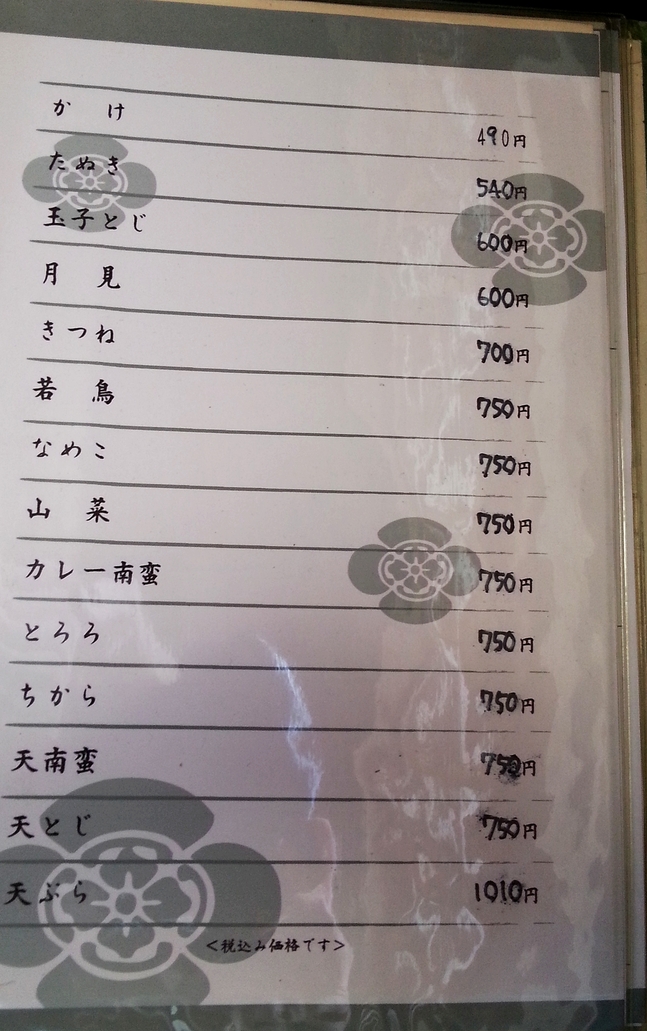 かけ 490円
たぬき 540円
玉子とじ 600円
月見 600円
きつね 700円
若鳥 750円
なめこ 750円
山菜 750円
カレー南蛮 750円
とろろ 750円
ちから 750円
天南蛮 750円
天とじ 750円
天ぷら 1010円
＜税込み価格です＞